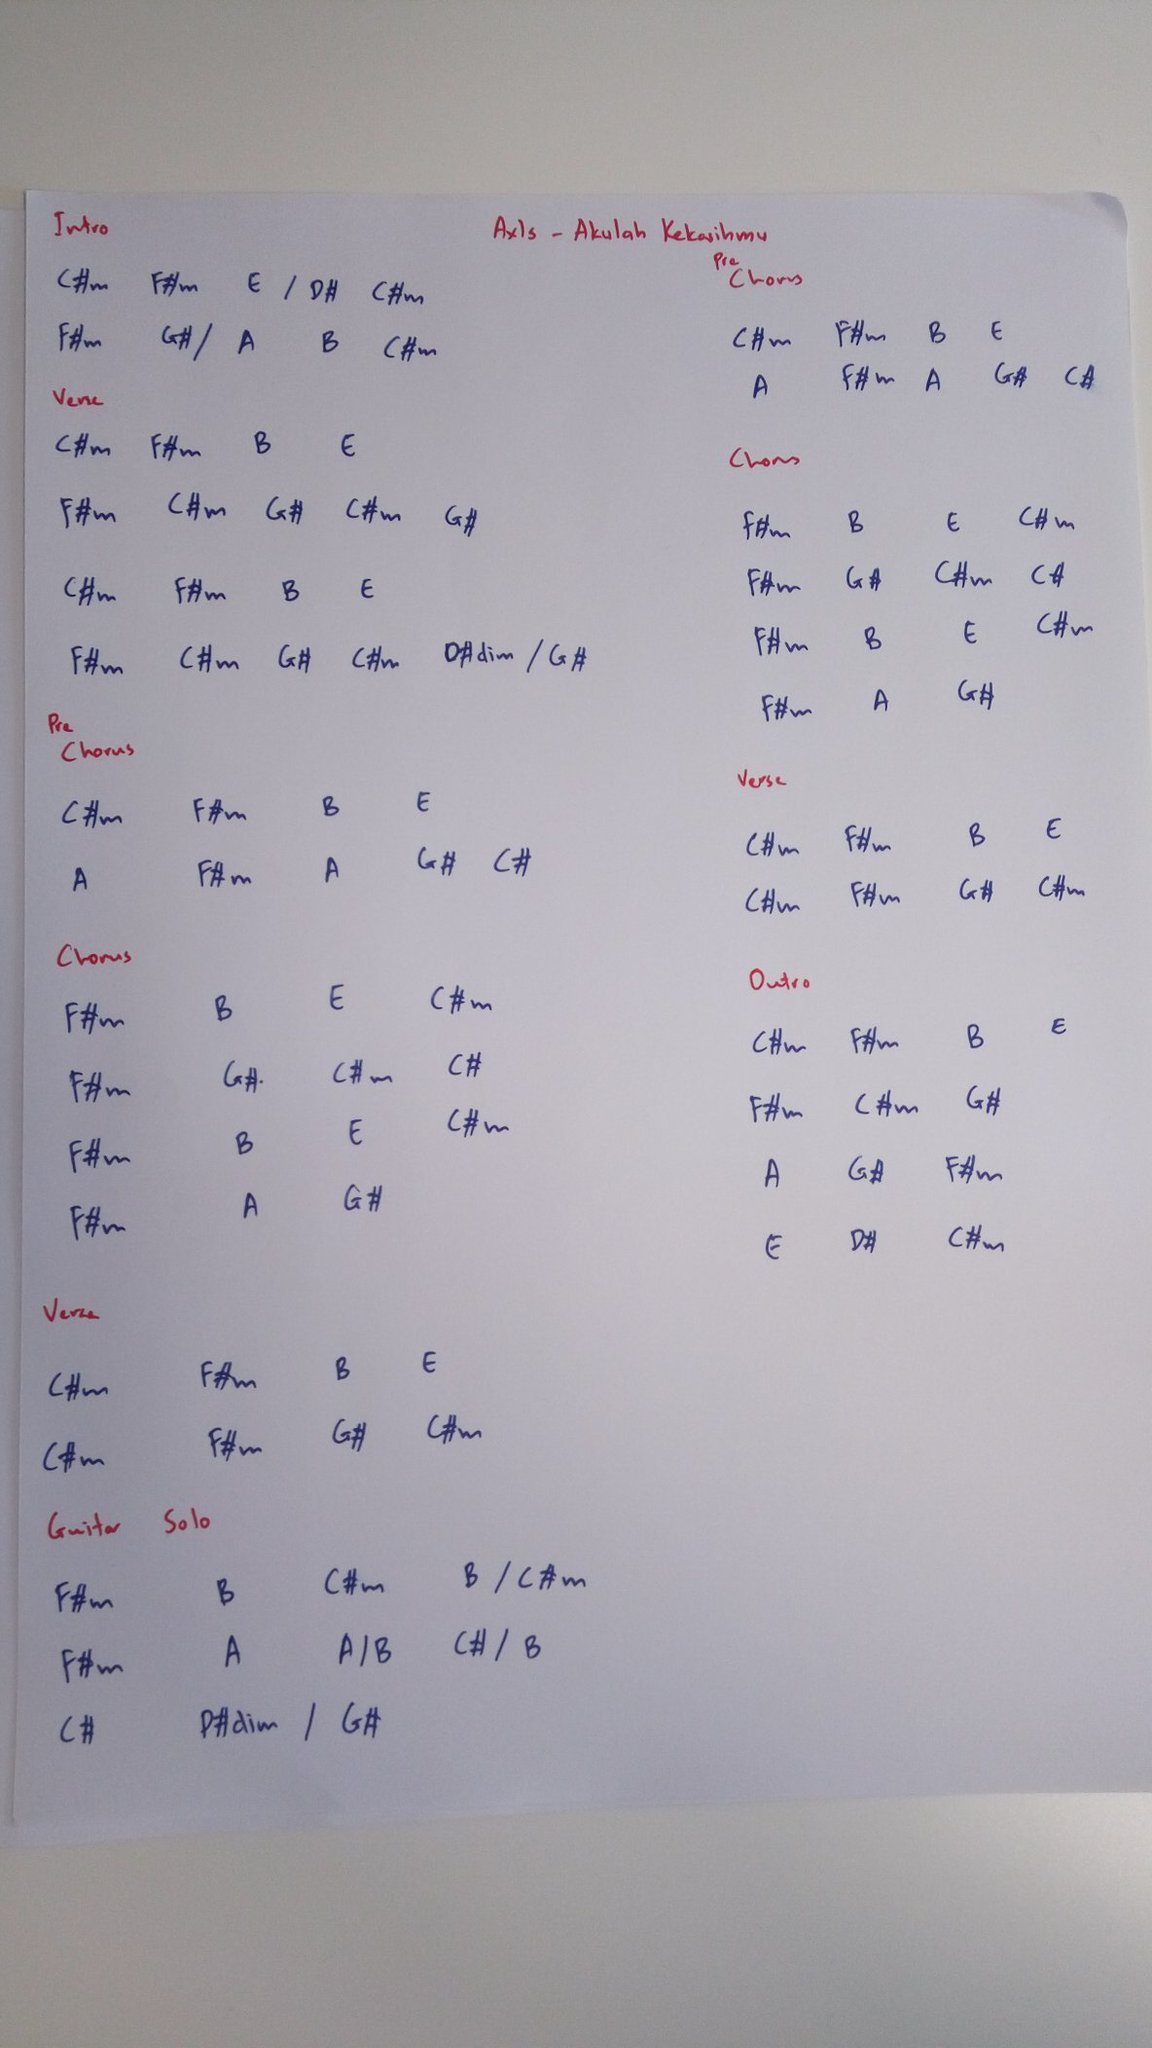 Axls - Akulah Kekasihmu
Intro
C#m F#m E / D# C#m
F#m G#/ A B C#m
Verse
C#m F#m B E
F#m C#m G# C#m G#
C#m F#m B E
F#m C#m G# C#m D#dim / G#
Pre
Chorus
C#m F#m B E
A F#m A G# C#
Chorus
F#m B E C#m
F#m G#. C#m C#
F#m B E C#m
F#m A G#
Verse
C#m F#m B E
C#m F#m G# C#m
Guitar Solo
F#m B C#m B / C#m
F#m A A/B C# / B
C# D#dim / G#
Pre
Chorus
C#m F#m B E
A F#m A G# C#
Chorus
F#m B E C#m
F#m G# C#m C#
F#m B E C#m
F#m A G#
Verse
C#m F#m B E
C#m F#m G# C#m
Outro
C#m F#m B E
F#m C#m G#
A G# F#m
E D# C#m